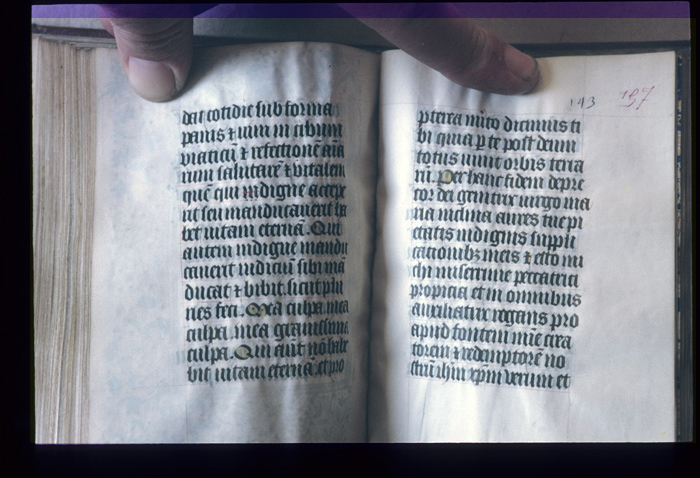 dat cotidie sub forma
panis ⁊ uini in cibum
uiaticū ⁊ refectionē aīa
rum salutarē ⁊ vitalem
quē qui indigne accepe
rit seu manducauerit ha
bet uitam eternā. Qui
autem indigne mandu
cauerit iudiciū sibi mā
ducat ⁊ bibit. sicut
nes feci. Mea culpa mea
culpa. mea grauissima
culpa. Qui eūt nō habe
bit uitam eternā. et pro
143 197
pterea uirgo dicimus ti
bi quia p te post deum
totus uiuit orbis terra
rū. Per hanc fidem depre
cor dei genitrix uirgo ma
ria inclina aures tue pi
etatis indignis suppli
cationibꝫ meis ⁊ esto mi
chi miserrime peccatrici
propicia et in omnibus
auxiliatrix rogans pro
apud fontem mīe crea
torem ⁊ redemptorē no
strū ihm xpm uerum et